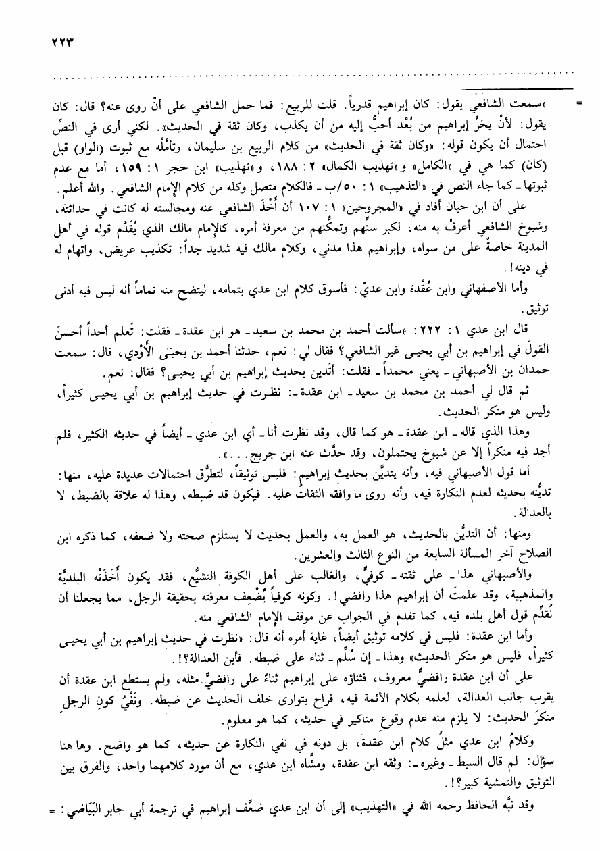 ٢٢٣
= «سمعت الشافعي يقول: كان إبراهيم قدرياً. قلت للربيع: فما حمل الشافعي على أنْ روى عنه؟ قال: كان
يقول: لأنْ يخرَّ إبراهيم من بُعْد أحبُّ إليه من أن يكذب، وكان ثقة في الحديث». لكني أرى في النصّ
احتمال أن يكون قوله: «وكان ثقة في الحديث» من كلام الربيع بن سليمان، وتأمَّله مع ثبوت (الواو) قبل
(كان) كما هي في «الكامل» و«تهذيب الكمال» ٢: ١٨٨، و«تهذيب» ابن حجر ١: ١٥٩، أما مع عدم
ثبوتها ـ كما جاء النص في «التذهيب» ١: ٥٠/ب ـ فالكلام متصل وكله من كلام الإمام الشافعي. والله أعلم.
على أن ابن حبان أفاد في «المجروحين» ١: ١٠٧ أن أَخْذَ الشافعي عنه ومجالسته له كانت في حداثته،
وشيوخ الشافعي أعرفُ به منه، لكبر سنِّهم وتمكُّنهم من معرفة أمره، كالإمام مالك الذي يُقدَّم قوله في أهل
المدينة خاصةً على من سواه، وإبراهيم هذا مدني، وكلام مالك فيه شديد جداً: تكذيب عريض، واتهام له
في دينه!.
وأما الأصفهاني وابن عُقْدة وابن عديّ: فأسوق كلام ابن عدي بتمامه، ليتضح منه تماماً أنه ليس فيه أدنى
توثيق.
قال ابن عدي ١: ٢٢٢: «سألت أحمد بن محمد بن سعيد ـ هو ابن عقدة ـ فقلت: تَعلم أحداً أحسنَ
القولَ في إبراهيم بن أبي يحيى غير الشافعي؟ فقال لي: نعم، حدثنا أحمد بن يحيى الأَوْدي، قال: سمعت
حمدان بن الأصبهاني ـ يعني محمداً ـ فقلت: أتَدين بحديث إبراهيم بن أبي يحيى؟ فقال: نعم.
ثم قال لي أحمد بن محمد بن سعيد ـ ابن عقدة ـ: نظرت في حديث إبراهيم بن أبي يحيى كثيراً،
وليس هو منكر الحديث.
وهذا الذي قاله ـ ابن عقدة ـ هو كما قال، وقد نظرت أنا ـ أي ابن عدي ـ أيضاً في حديثه الكثير، فلم
أجد فيه منكراً إلا عن شيوخ يحتملون، وقد حدَّث عنه ابن جريج...».
أما قول الأصفهاني فيه، وأنه يتديَّن بحديث إبراهيم: فليس توثيقاً، لتطرُّق احتمالات عديدة عليه، منها:
تديُّنه بحديث لعدم النكارة فيه، وأنه روى ما وافقه الثقاتُ عليه. فيكون قد ضبطه، وهذا له علاقة بالضبط، لا
بالعدالة.
ومنها: أن التديُّن بالحديث، هو العمل به، والعمل بحديث لا يستلزم صحته ولا ضعفه، كما ذكره ابن
الصلاح آخر المسألة السابعة من النوع الثالث والعشرين.
والأصبهاني هذا ـ على ثقته ـ كوفيٌّ، والغالب على أهل الكوفة التشيُّع، فقد يكون أخَذَتْه البلديَّة
والمذهبية، وقد علمتَ أن إبراهيم هذا رافضي!. وكونه كوفياً يُضعِف معرفته بحقيقة الرجل، مما يجعلنا أن
نُقدِّم قول أهل بلده فيه، كما تقدم في الجواب عن موقف الإمام الشافعي منه.
وأما ابن عقدة: فليس في كلامه توثيق أيضاً، غاية أمره أنه قال: «نظرت في حديث إبراهيم بن أبي يحيى
كثيراً، فليس هو منكر الحديث» وهذا ـ إن سُلِّم ـ ثناء على ضبطه. فأين العدالة؟!.
على أن ابن عقدة رافضيٌّ معروف، فثناؤه على إبراهيم ثناءٌ على رافضيٍّ مثله، ولم يستطع ابن عقدة أن
يقرب جانب العدالة، لعلمه بكلام الأئمة فيه، فراح يتوارى خلف الحديث عن ضبطه. ونَفْيُ كونِ الرجلِ
منكرَ الحديث: لا يلزم منه عدم وقوعِ مناكير في حديثه، كما هو معلوم.
وكلامُ ابن عدي مثلُ كلام ابن عقدة، بل دونه في نفي النكارة عن حديثه، كما هو واضح. وها هنا
سؤال: لم قال السبط ـ وغيره ـ: وثقه ابن عقدة، ومشَّاه ابن عدي، مع أن مورد كلامهما واحد، والفرق بين
التوثيق والتمشية كبير؟!.
وقد نبَّه الحافظ رحمه الله في «التهذيب» إلى أن ابن عدي ضعَّف إبراهيم في ترجمة أبي جابر البَيَاضي: =